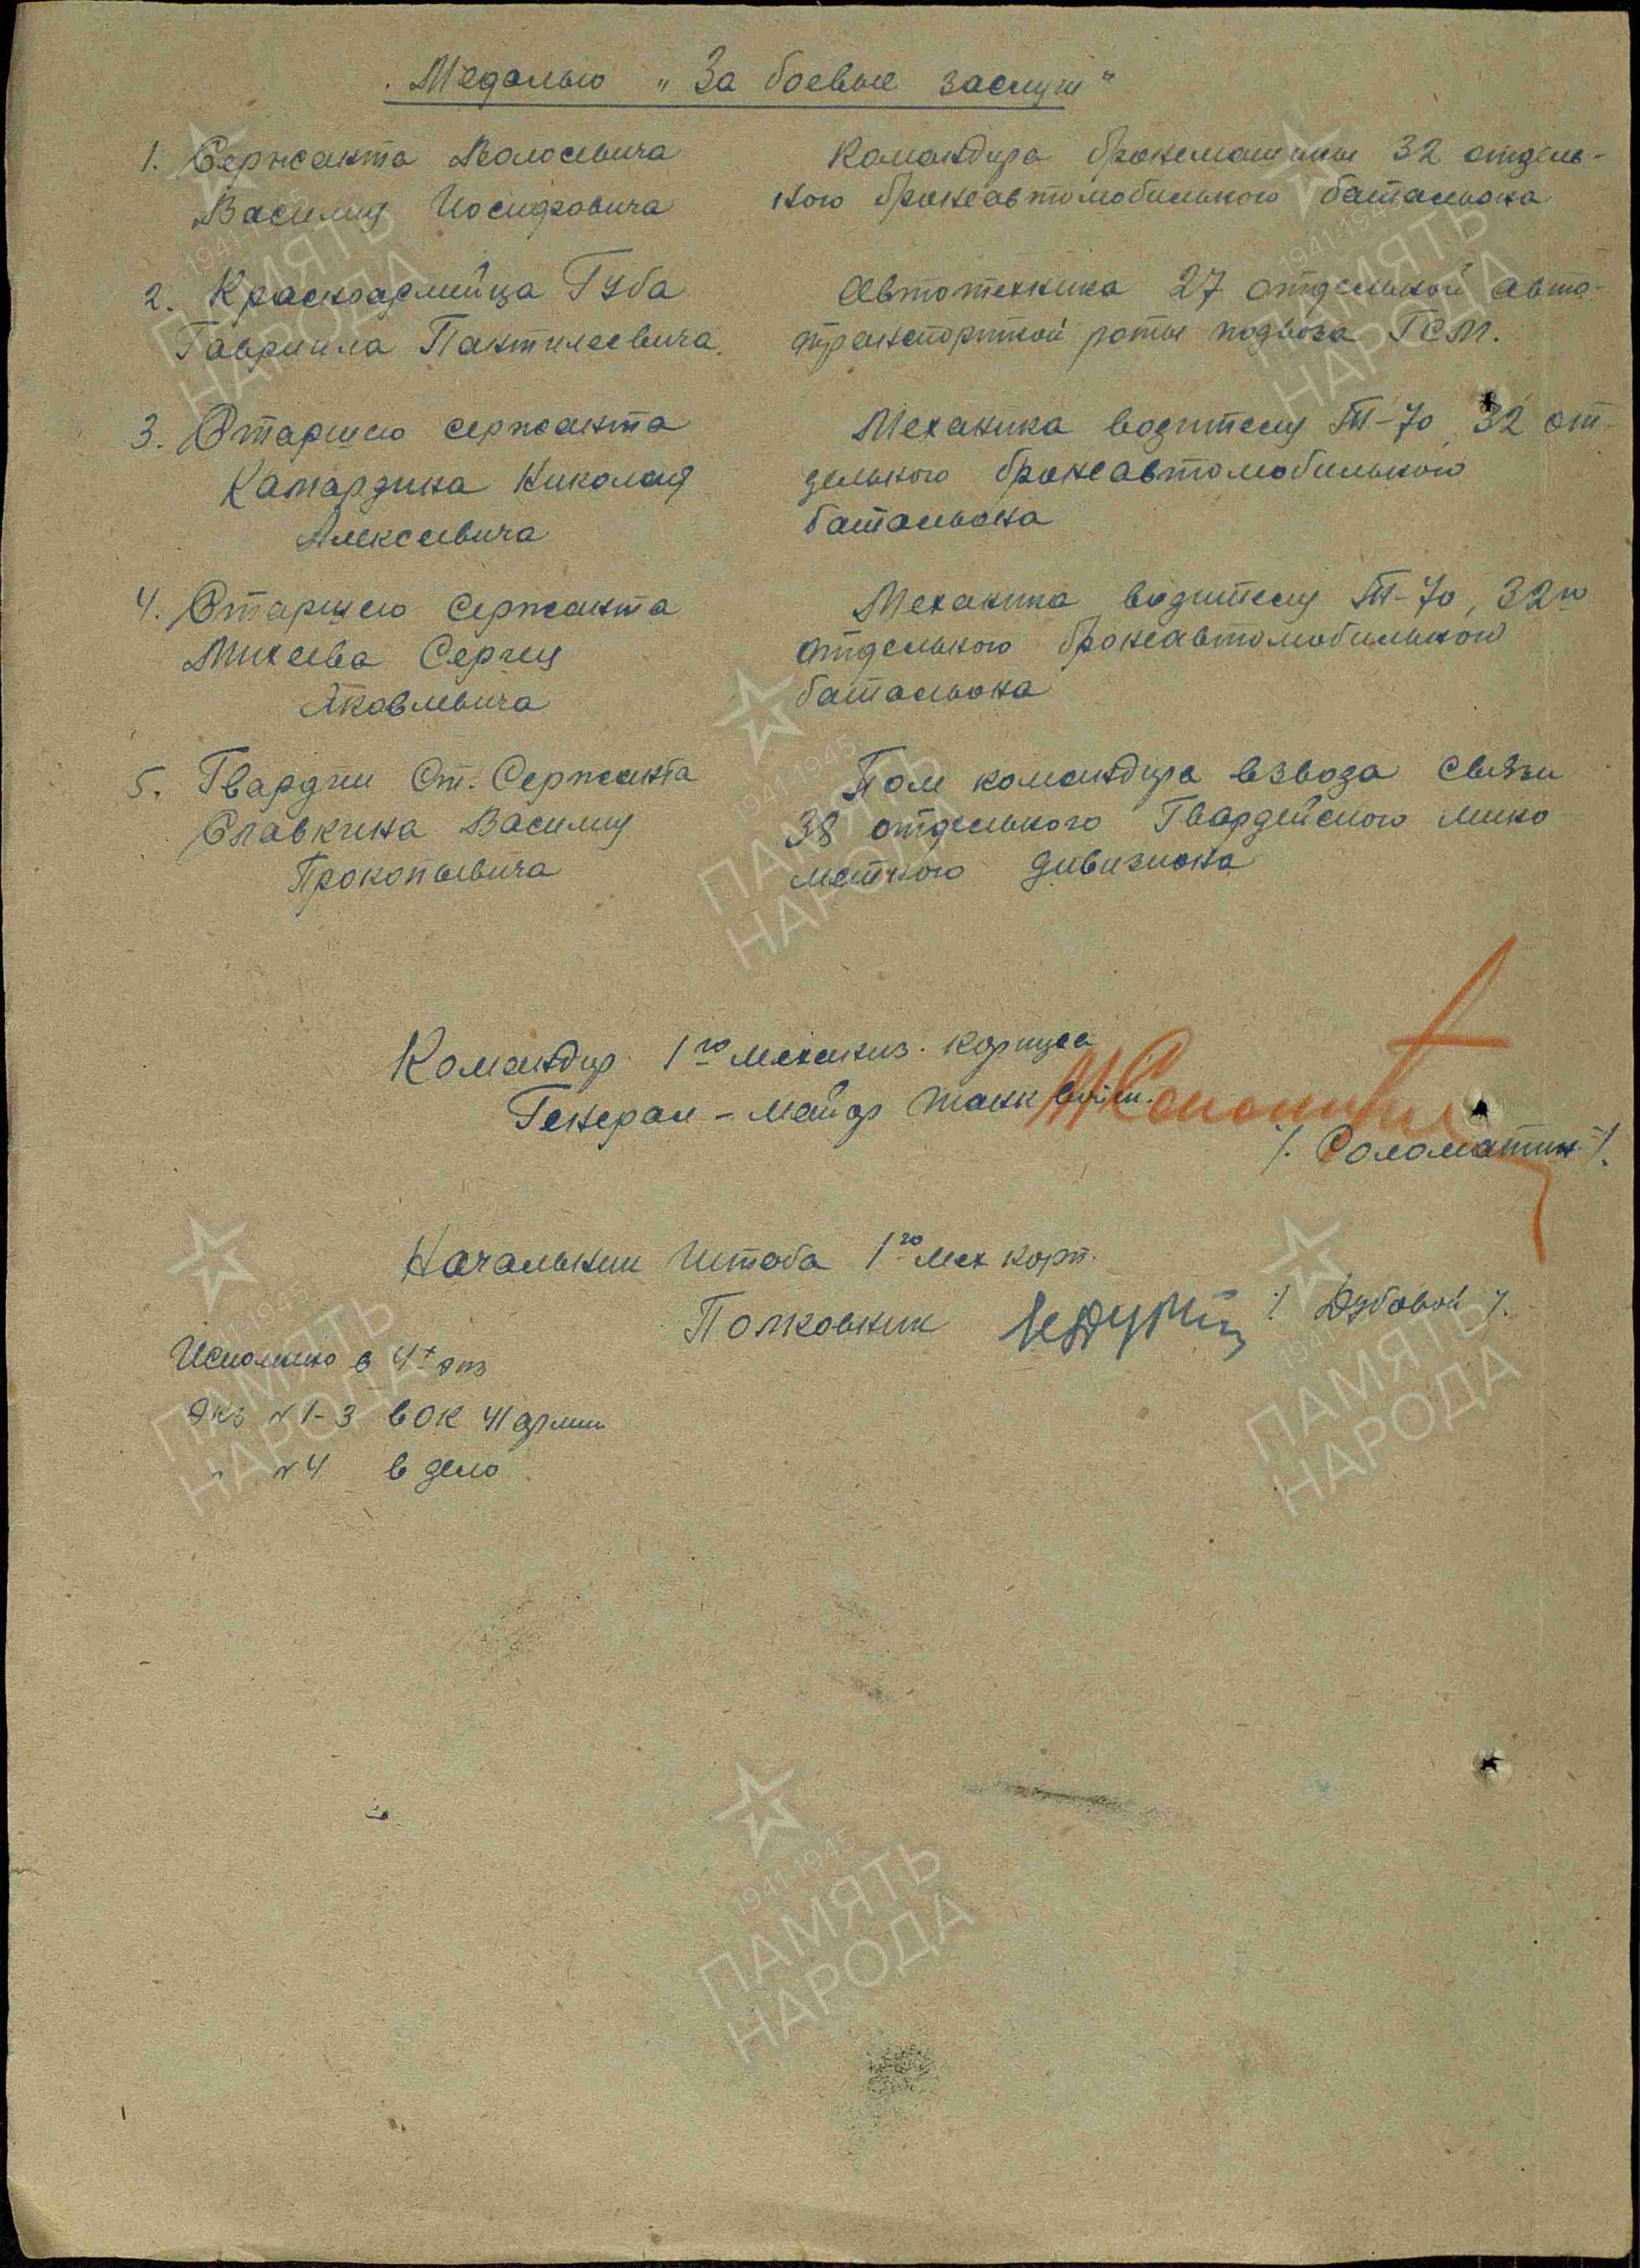 Медалью „За боевые заслуги"
1. Сержанта Волосевича
Василия Иосифовича
Командира бронемашины 32 отдель-
ного бронеавтомобильного батальона
2. Красноармейца Губа
Гавриила Пантилеевича.
Автотехника 27 отдельной авто-
транспортной роты подвоза ГСМ.
3. Старшего сержанта
Катардина Николая
Алексеевича
Механика водителя Т-70, 32 от-
дельного бронеавтомобильного
батальона
4. Старшего Сержанта
Михеева Сергея
Яковлевича
Механика водителя Т-70, 32го
отдельного бронеавтомобильного
батальона
5. Гвардии Ст. Сержанта
Славкина Василия
Прокопьевича
Пом командира взвода связи
38 отдельного Гвардейского мино
метного дивизиона
Командир 1го механиз. корпуса
Генерал-майор танк войск.
/. Соломатин /.
Начальник Штаба 1го мех корп.
Полковник /. Дубовой /.
Исполнено в 4х экз
Экз №1-3 в ОК 41 армии
" №4 в дело
1941-1945
ПАМЯТЬ
НАРОДА
1941-1945
ПАМЯТЬ
НАРОДА
1941-1945
ПАМЯТЬ
НАРОДА
1941-1945
ПАМЯТЬ
НАРОДА
1941-1945
ПАМЯТЬ
НАРОДА
1941-1945
ПАМЯТЬ
НАРОДА